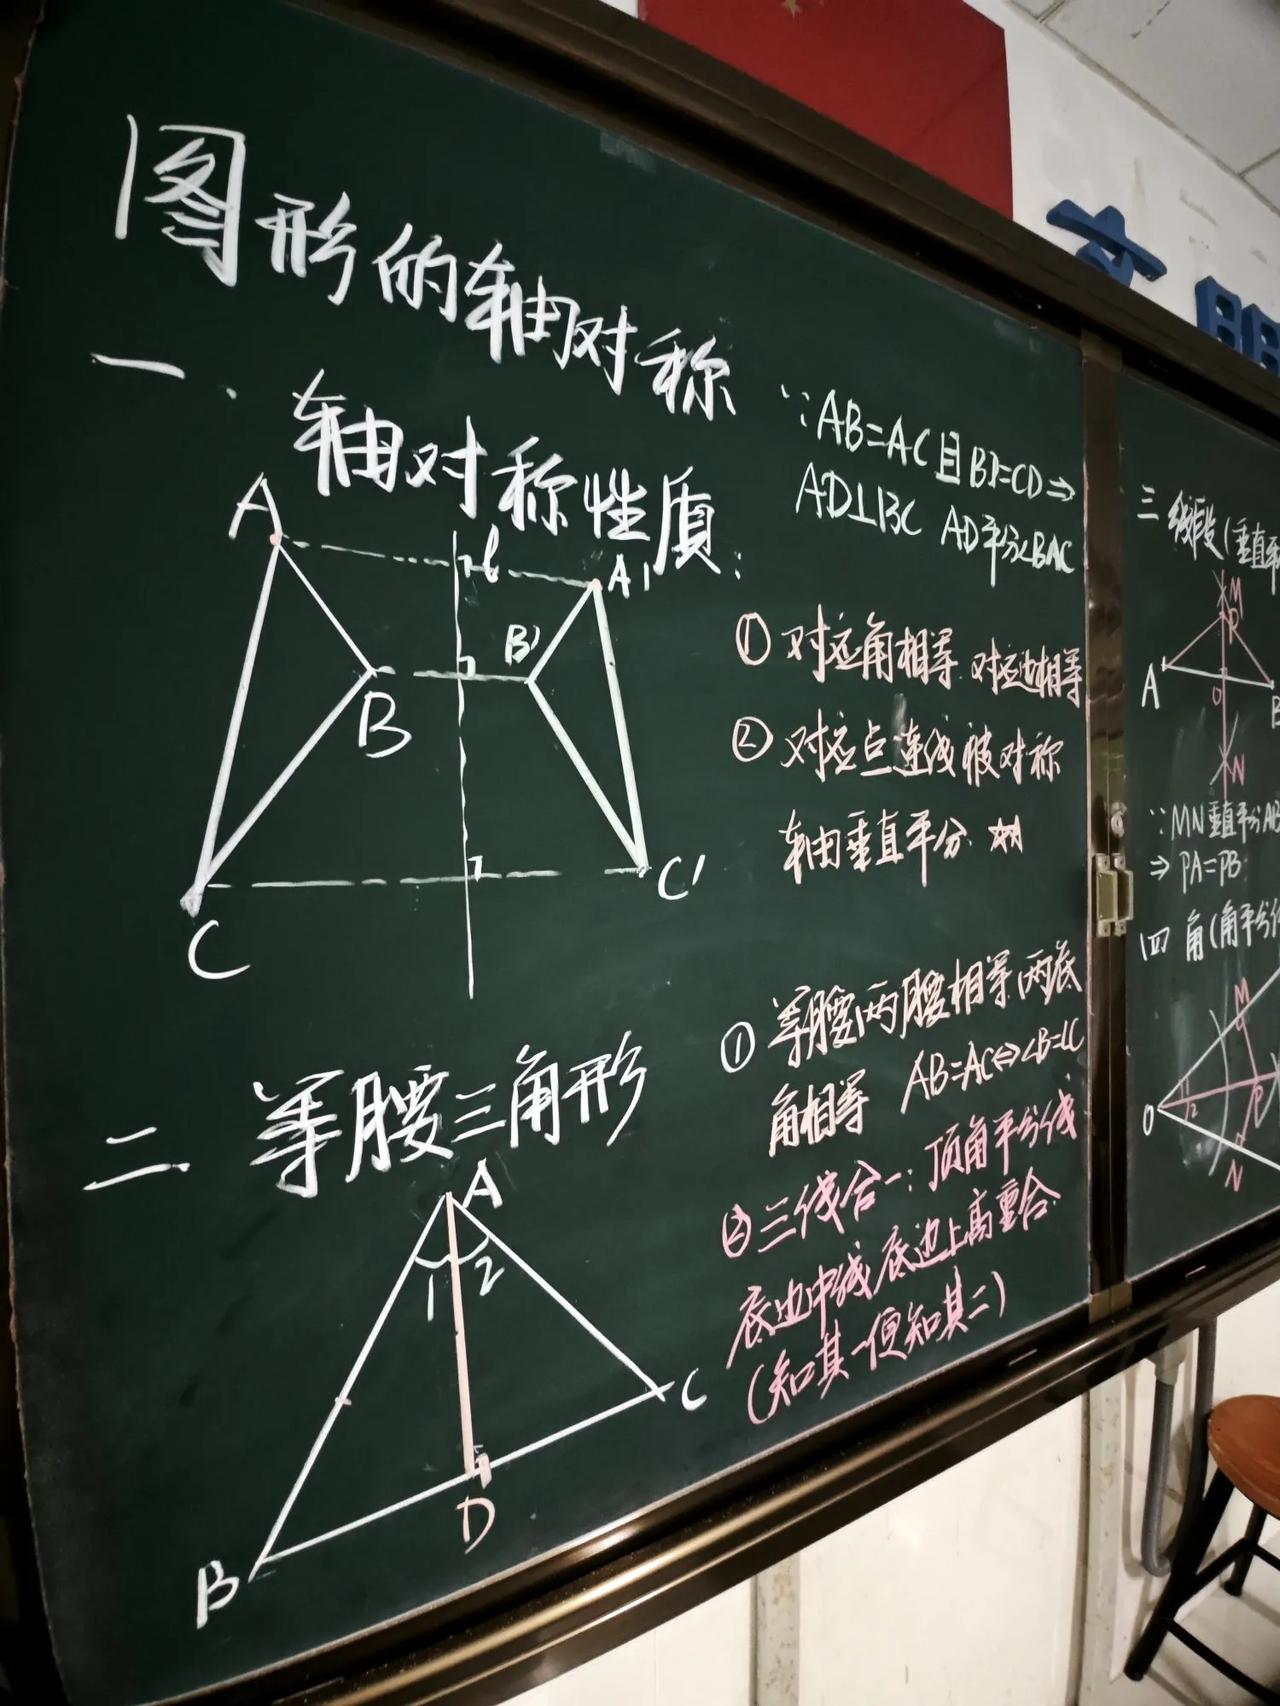 图形的轴对称
一、轴对称性质：
A
l
A'
B
B'
C
C'
∵AB=AC且BD=CD⇒
AD⊥BC AD平分∠BAC
①对应角相等 对应边相等
②对应点连线被对称
轴垂直平分 ☆☆
二 等腰三角形
A
1
2
B
D
C
①等腰，两腰相等，两底
角相等 AB=AC⇔∠B=∠C
②三线合一：顶角平分线
底边中线 底边上高重合.
(知其一便知其二)
三 线段(垂直平
M
P
A
O
B
N
∵MN垂直平分AB
⇒PA=PB
四 角(角平分
M
O
1
2
P
N
文明